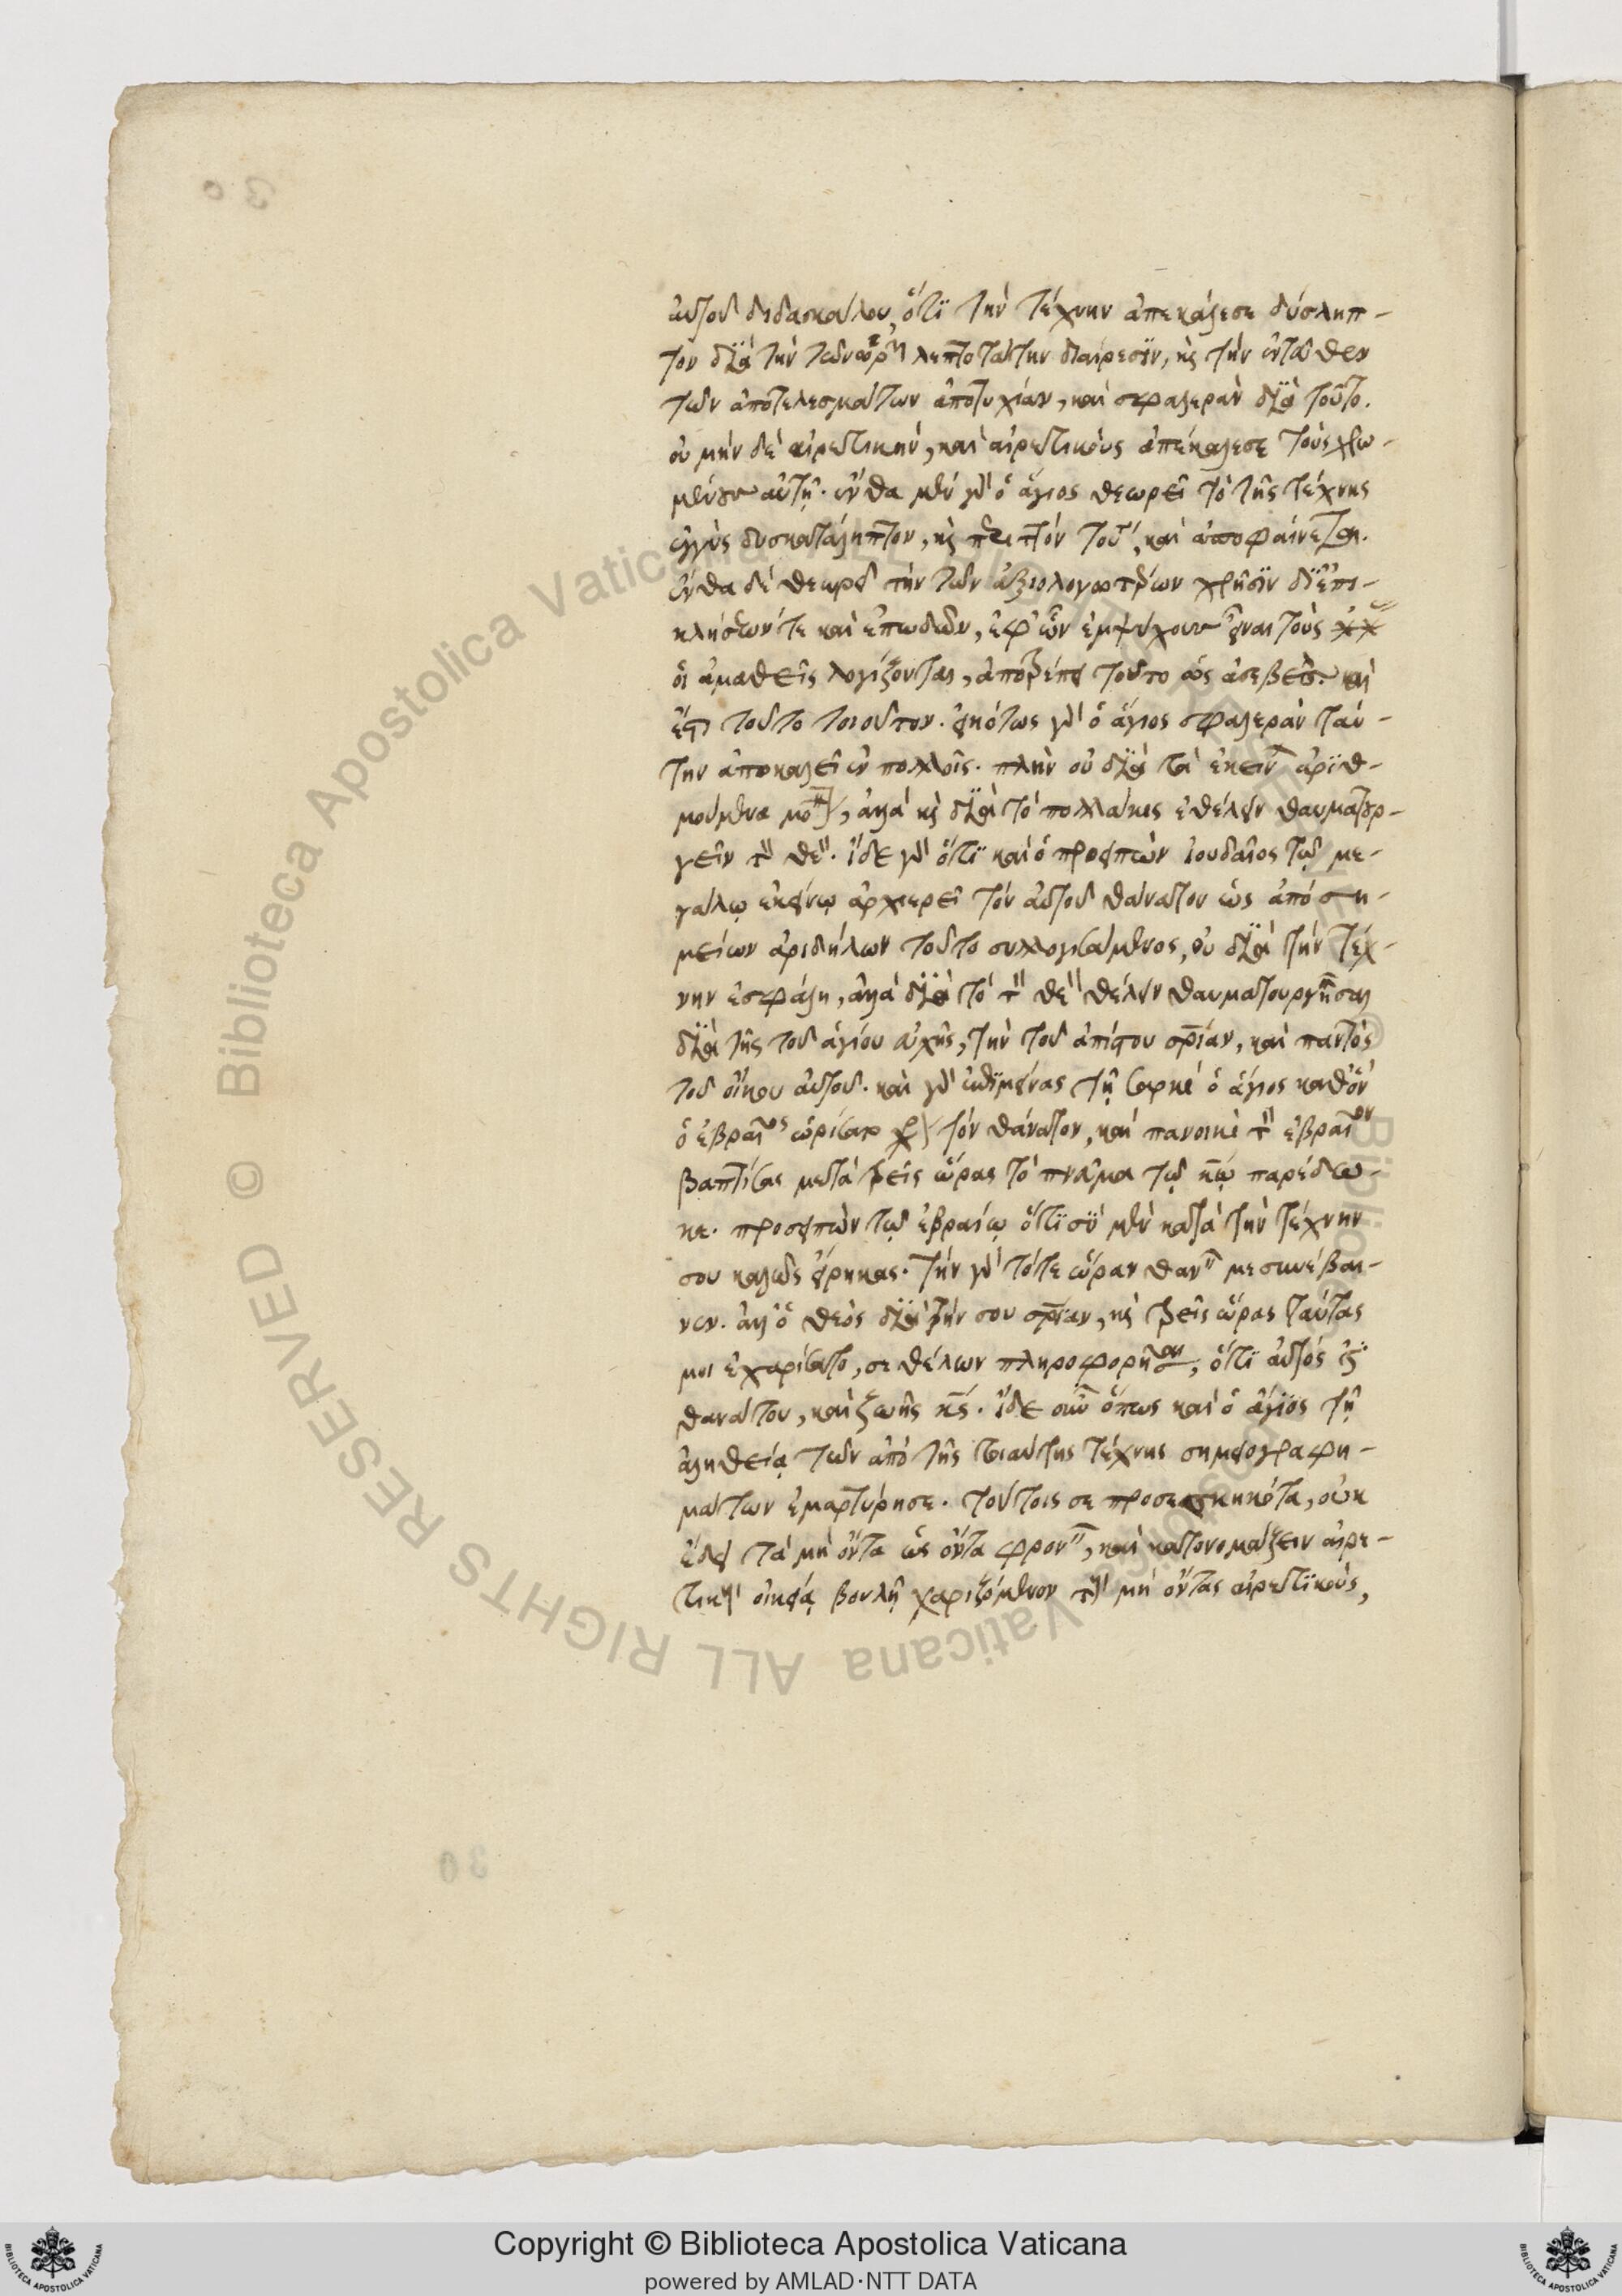 αὐτοῦ διδασκάλου, ὅτι τὴν τέχνην ἀπεκάλεσε δύσληπ-
τον διὰ τὴν τῶν ὡρῶν λεπτοτάτην διαίρεσιν, καὶ τὴν ἐντεῦθεν
τῶν ἀποτελεσμάτων ἀποτυχίαν, καὶ σφαλερὰν διὰ τοῦτο.
οὐ μὴν δὲ αἱρετικὴν, καὶ αἱρετικοὺς ἀπεκάλεσε τοὺς χρω-
μένους αὐτῇ. ἔνθα μὲν γὰρ ὁ ἅγιος θεωρεῖ τὸ τῆς τέχνης
δυσκατάληπτον, καὶ τοῦτ, καὶ ἀποφαίνεται.
ἔνθα δὲ θεωρεῖ τὴν τῶν χρῆσιν δι' ἐπι-
κλήσεών τε καὶ ἐπωδῶν, ἐφ' ὧν ἐμψύχους εἶναι τοὺς
οἱ ἀμαθεῖς λογίζονται, ἀποτρέπει τοῦτο ὡς ἀσεβές. καὶ
ἔστι τοῦτο τοιοῦτον. εἰκότως γὰρ ὁ ἅγιος σφαλερὰν ταύ-
την ἀποκαλεῖ ἐν πολλοῖς. πλὴν οὐ διὰ τὰ ἐκεῖν ἀριθ-
μούμενα μόνον, ἀλλὰ καὶ διὰ τὸ πολλάκις ἐθέλειν θαυματουρ-
γεῖν τὸν θεόν. ἴδε γὰρ ὅτι καὶ ὁ προειπὼν ἰουδαῖος τῷ με-
γάλῳ ἐκείνῳ ἀρχιερεῖ τὸν αὐτοῦ θάνατον ὡς ἀπὸ ση-
μείων ἀριδήλων τοῦτο συλλογισάμενος, οὐ διὰ τὴν τέχ-
νην ἐσφάλη, ἀλλὰ διὰ τὸ τὸν θεὸν θέλειν θαυματουργῆσαι
διὰ τῆς τοῦ ἁγίου εὐχῆς, τὴν τοῦ ἀπίστου σρίαν, καὶ παντὸς
τοῦ οἴκου αὐτοῦ. καὶ γὰρ ἐπιμείνας τῇ σαρκὶ ὁ ἅγιος καθ' ὃν
ὁ ἑβραῖος ὡρίσατο τὸν θάνατον, καὶ πανοικὶ τὸν ἑβραῖον
βαπτίσας μετὰ τρεῖς ὥρας τὸ πνεῦμα τῷ κω παρέδω-
κε. προσειπὼν τῷ ἑβραίῳ ὅτι σὺ μὲν κατὰ τὴν τέχνην
σου καλῶς εἴρηκας. τὴν γὰρ τότε ὥραν θανεῖν με συνέβαι-
νεν. ἀλλ' ὁ θεὸς διὰ τήν σου σρίαν, καὶ τρεῖς ὥρας ταύτας
μοι ἐχαρίσατο, σε θέλων πληροφορῆσαι, ὅτι αὐτός ἐστι
θανάτου, καὶ ζωῆς κς. ἴδε οὖν ὅπως καὶ ὁ ἅγιος τῇ
ἀληθείᾳ τῶν ἀπὸ τῆς τοιαύτης τέχνης σημειογραφη-
μάτων ἐμαρτύρησε. τούτοις σε προσεσχηκότα, οὐκ
ἔδει τὰ μὴ ὄντα ὡς ὄντα φρονεῖν, καὶ κατονομάζειν αἱρε-
τικὴν οἰκείᾳ βουλῇ χαριζόμενον τοὺς μὴ ὄντας αἱρετικούς,
Copyright © Biblioteca Apostolica Vaticana
powered by AMLAD·NTT DATA